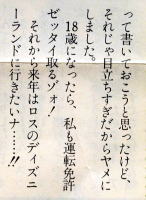 って書いておこうと思ったけど、
それじゃ目立ちすぎだからヤメに
しました。
18歳になったら、私も運転免許
ゼッタイ取るゾォ!
それから来年はロスのディズニ
ーランドに行きたいナ……!!